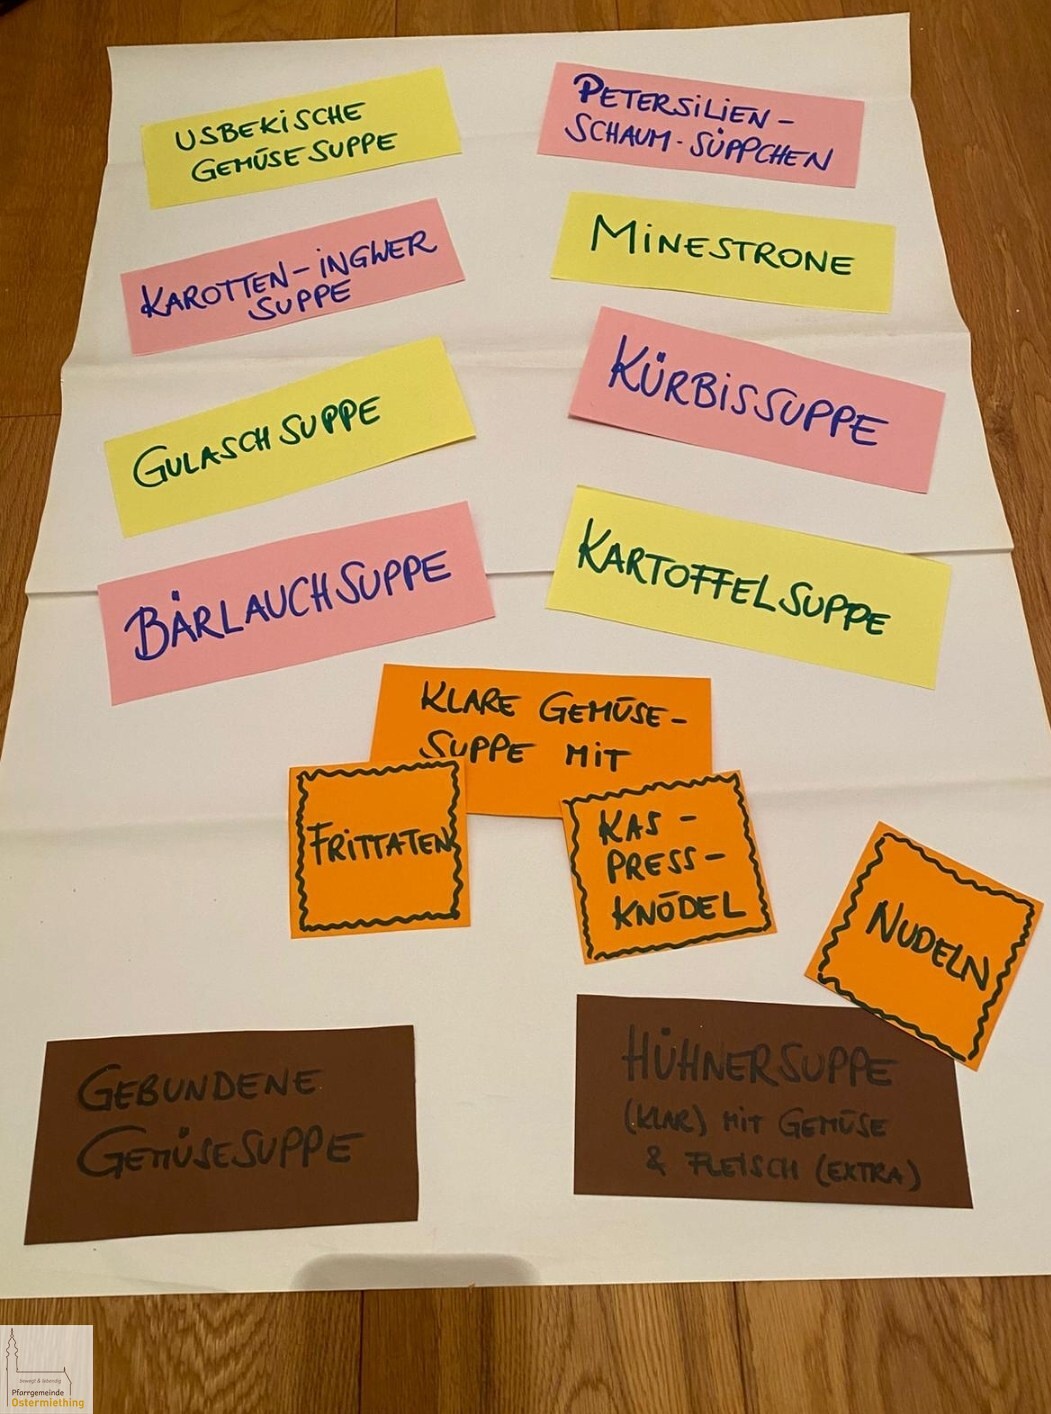 USBEKiSCHE
GEMÜSESUPPE
PETERSiLiEN-
SCHAUM-SÜPPCHEN
KAROTTEN-iNGWER
SUPPE
MiNESTRONE
GULASCHSUPPE
KÜRBiSSUPPE
BÄRLAUCHSUPPE
KARTOFFELSUPPE
KLARE GEMÜSE-
SUPPE MiT
FRiTTATEN
KAS-
PRESS-
KNÖDEL
NUDELN
GEBUNDENE
GEMÜSESUPPE
HÜHNERSUPPE
(KLAR) MiT GEMÜSE
& FLEiSCH (EXTRA)
bewegt & lebendig
Pfarrgemeinde
Ostermiething